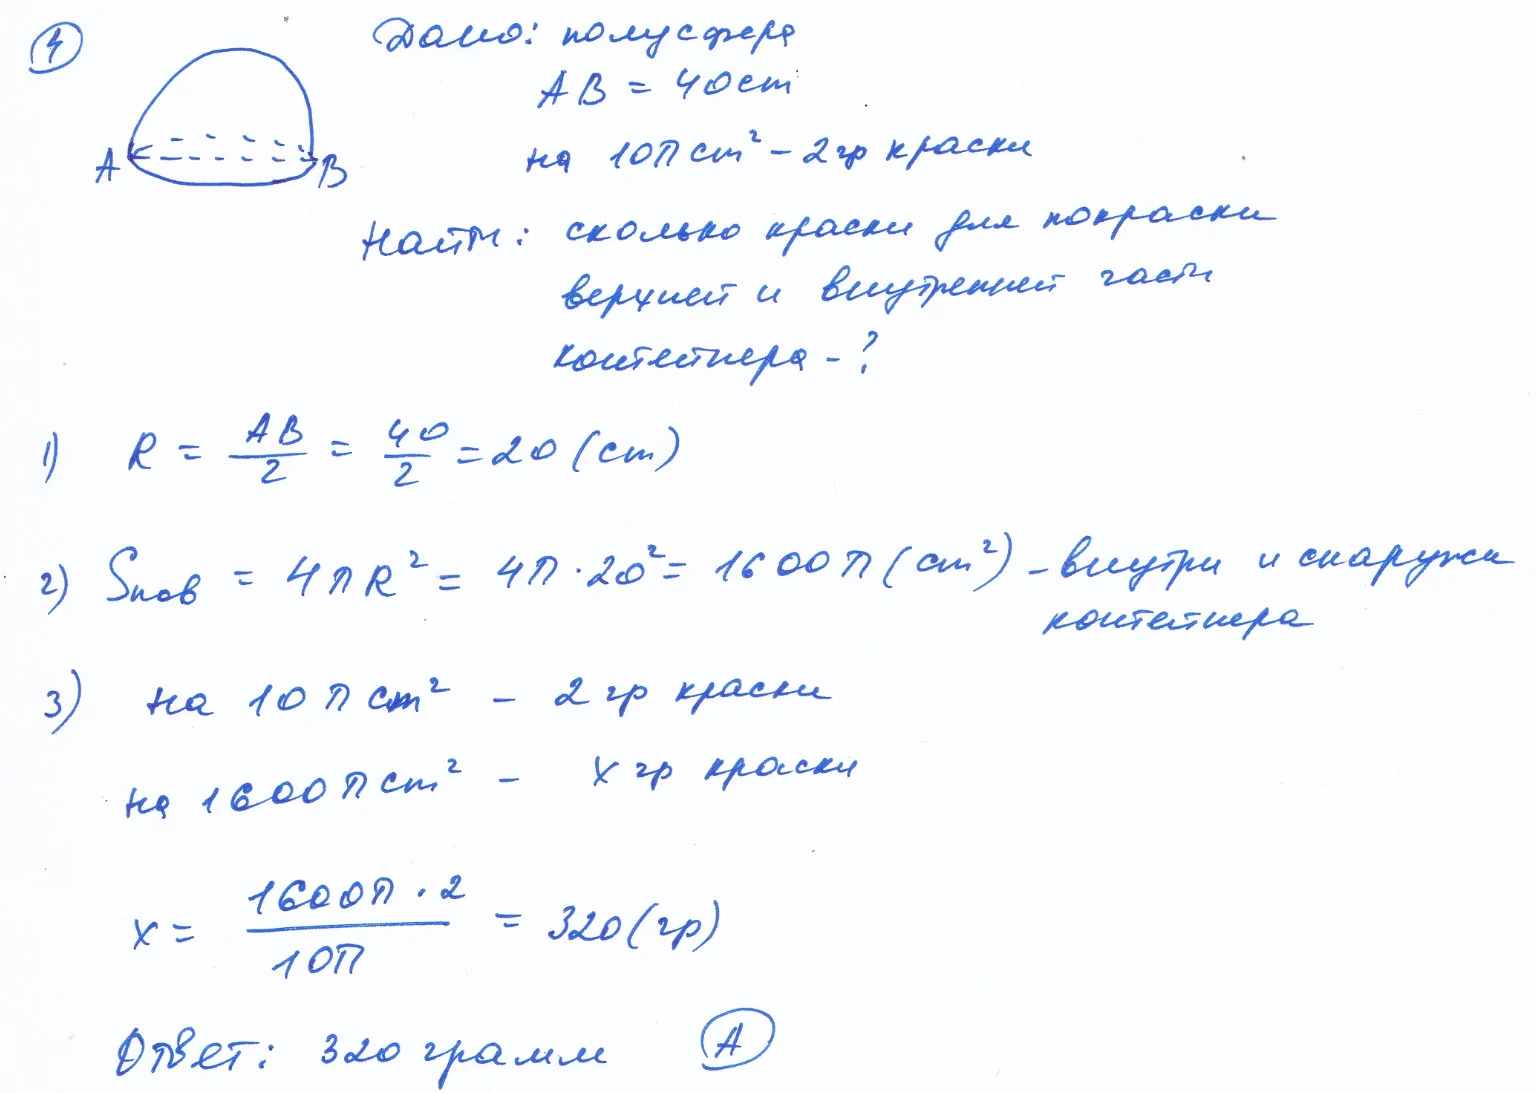 4
Дано: полусфера
AB = 40 cm
на 10π cm² – 2 гр краски
A B
Найти: сколько краски для покраски
верхней и внутренней части
контейнера – ?
1) R = AB/2 = 40/2 = 20 (cm)
2) Sпов = 4πR² = 4π · 20² = 1600π (cm²) – внутри и снаружи
контейнера
3) на 10π cm² – 2 гр краски
на 1600π cm² – x гр краски
x = 1600π · 2 / 10π = 320 (гр)
Ответ: 320 грамм A